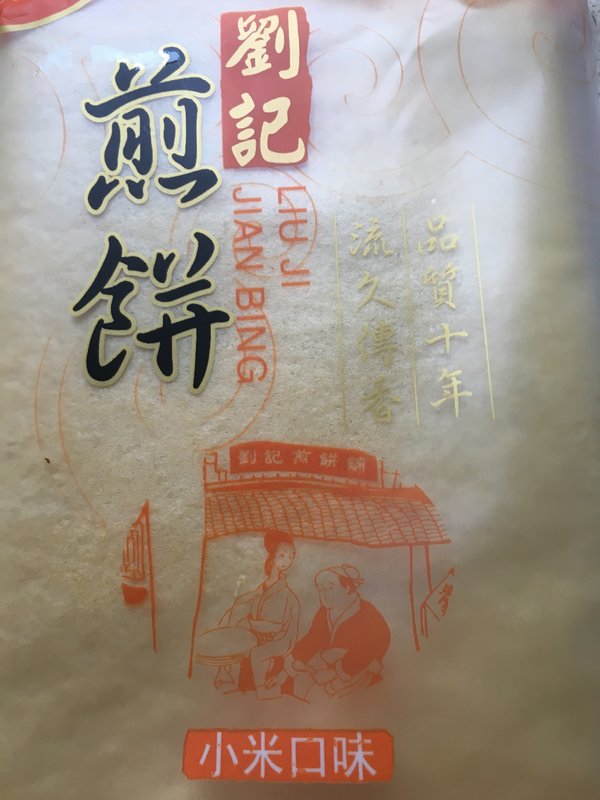 劉記
煎餅
LIU JI
JIAN BING
品質十年
流久傳香
劉記煎餅鋪
小米口味